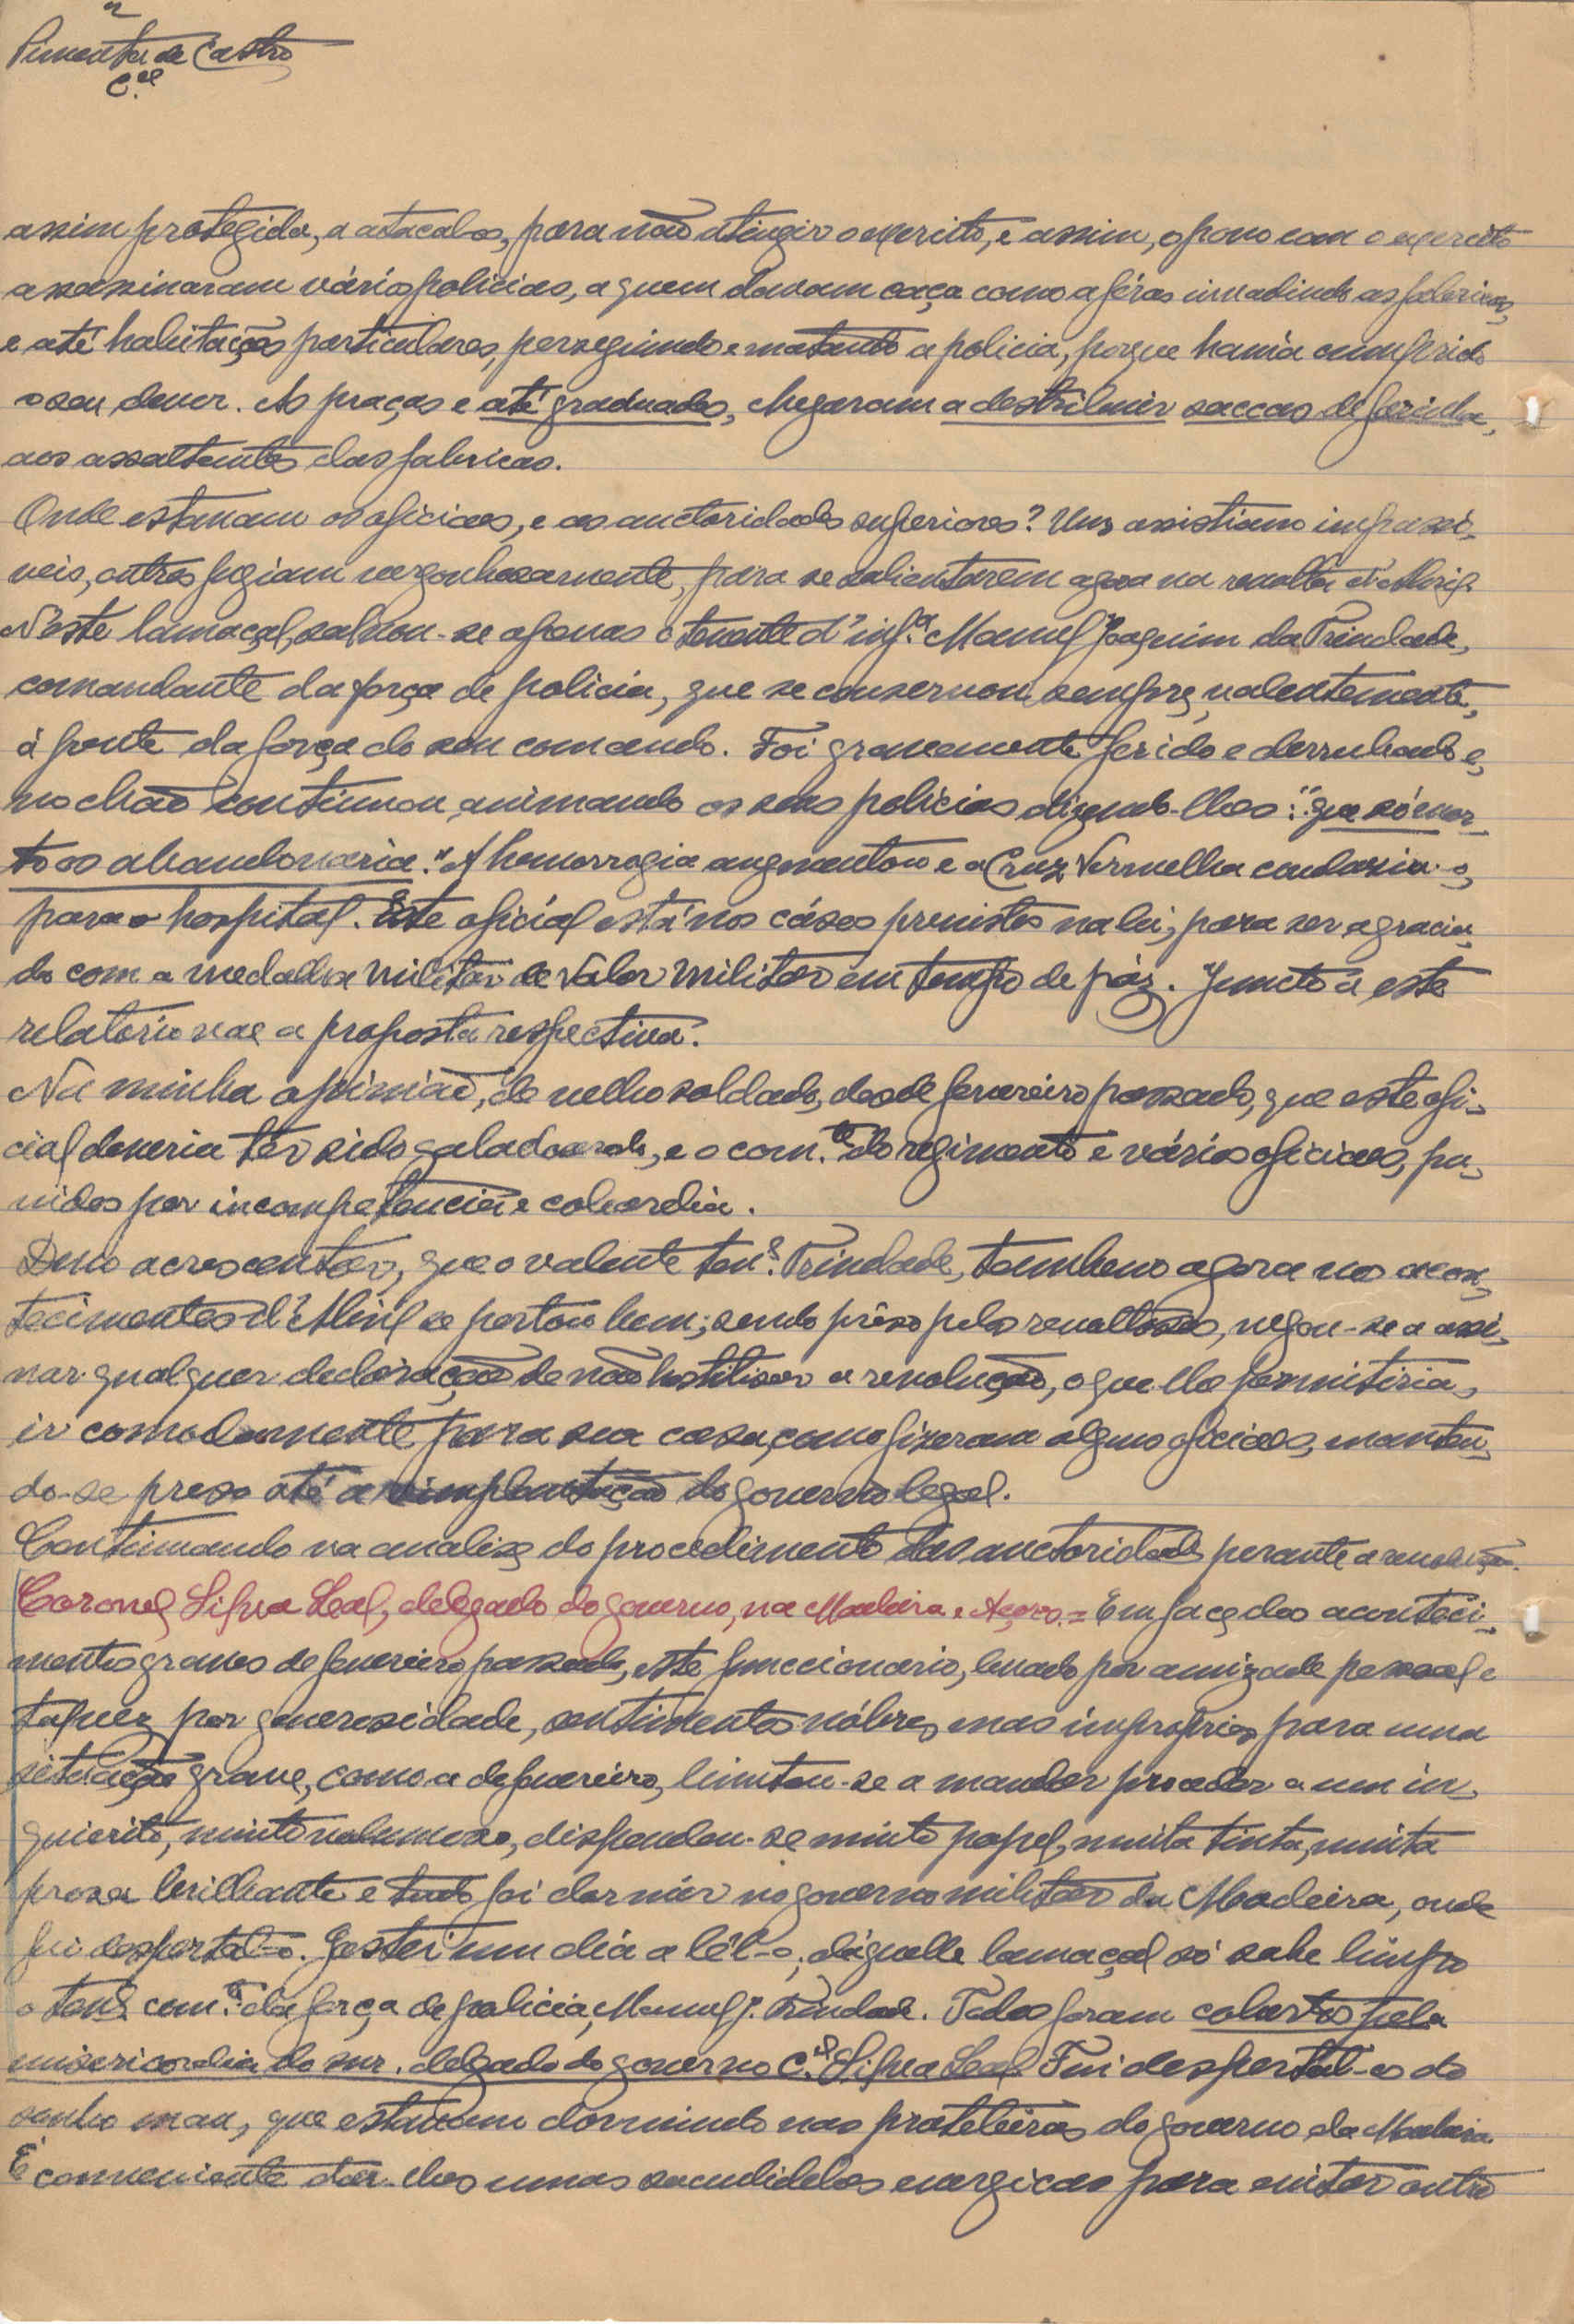 Pimenta de Castro
C.el
assim protegida, a atacal-os, para não atingir o exercito, e assim, o povo com o exercito
assassinaram vários policias, a quem davam caça como a féras invadindo as fabricas,
e até habitações particulares, perseguindo e matando a policia, porque havia cumprido
o seu dever. As praças e até graduados, chegaram a destribuir saccas de farinha,
aos assaltantes das fabricas.
Onde estavam os oficiaes, e as auctoridades superiores? Uns assistiam impassi-
veis, outros fugiam vergonhosamente, para se salientarem agora na revolta d'Abril.
N'este lamaçal, salvou-se apenas o tenente d'inf.a Manuel Joaquim da Trindade,
comandante da força de policia, que se conservou sempre, valentemente,
á frente da força do seu comando. Foi gravemente ferido e derrubado e,
no chão continuou animando os seus policias dizendo-lhes: "que só mor-
to os abandonaria." A hemorragia augmentou e a Cruz Vermelha conduziu-o,
para o hospital. Este oficial está nos cásos previstos na lei, para ser agracia-
do com a medalha militar de valor militar em tempo de páz. Juncto a este
relatório vae a proposta respectiva.
Na minha opinião, de velho soldado, desde fevereiro passado, que este ofi-
cial deveria ter sido galadoardo, e o com.te do regimento e vários oficiaes, pu-
nidos por incompetencia e cobardia.
Devo acrescentar, que o valente ten.e Trindade, tambem agora nos acon-
tecimentos d'Abril se portou bem; sendo prêso pelos revoltosos, negou-se a assi-
nar qualquer declaração de não hostilisar a revolução, o que lhe permitiria,
ir comodamente para sua casa, como fizeram alguns oficiaes, manten-
do-se preso até a reimplantação do governo legal.
Continuando na analise do procedimento das auctoridades perante a revolução.
Coronel Silva Leal, delegado do governo, na Madeira e Açores. = Em face dos aconteci-
mentos graves de fevereiro passado, este funccionario, levado por amizade pessoal e
talvez por generosidade, sentimentos nóbres, mas improprios para uma
situação grave, como a de fevereiro, limitou-se a mandar proceder a um in-
quierito, muito volumoso, dispendeu-se muito papel, muita tinta, muita
prosa brilhante e tudo foi dormir no governo militar da Madeira, onde
fui despertal-o. Gastei um dia a lêl-o; d'aquelle lamaçal só sahe limpo
o ten.e com.te da força de policia, Manuel J. Trindade. Todos foram cobertos pela
misericordia do snr. delegado do governo C.el Silva Leal. Fui despertal-os do
sonho mau, que estavam dormindo nas prateleiras do governo da Madeira.
É conveniente dar-lhes umas sacudidelas energicas para evitar outro